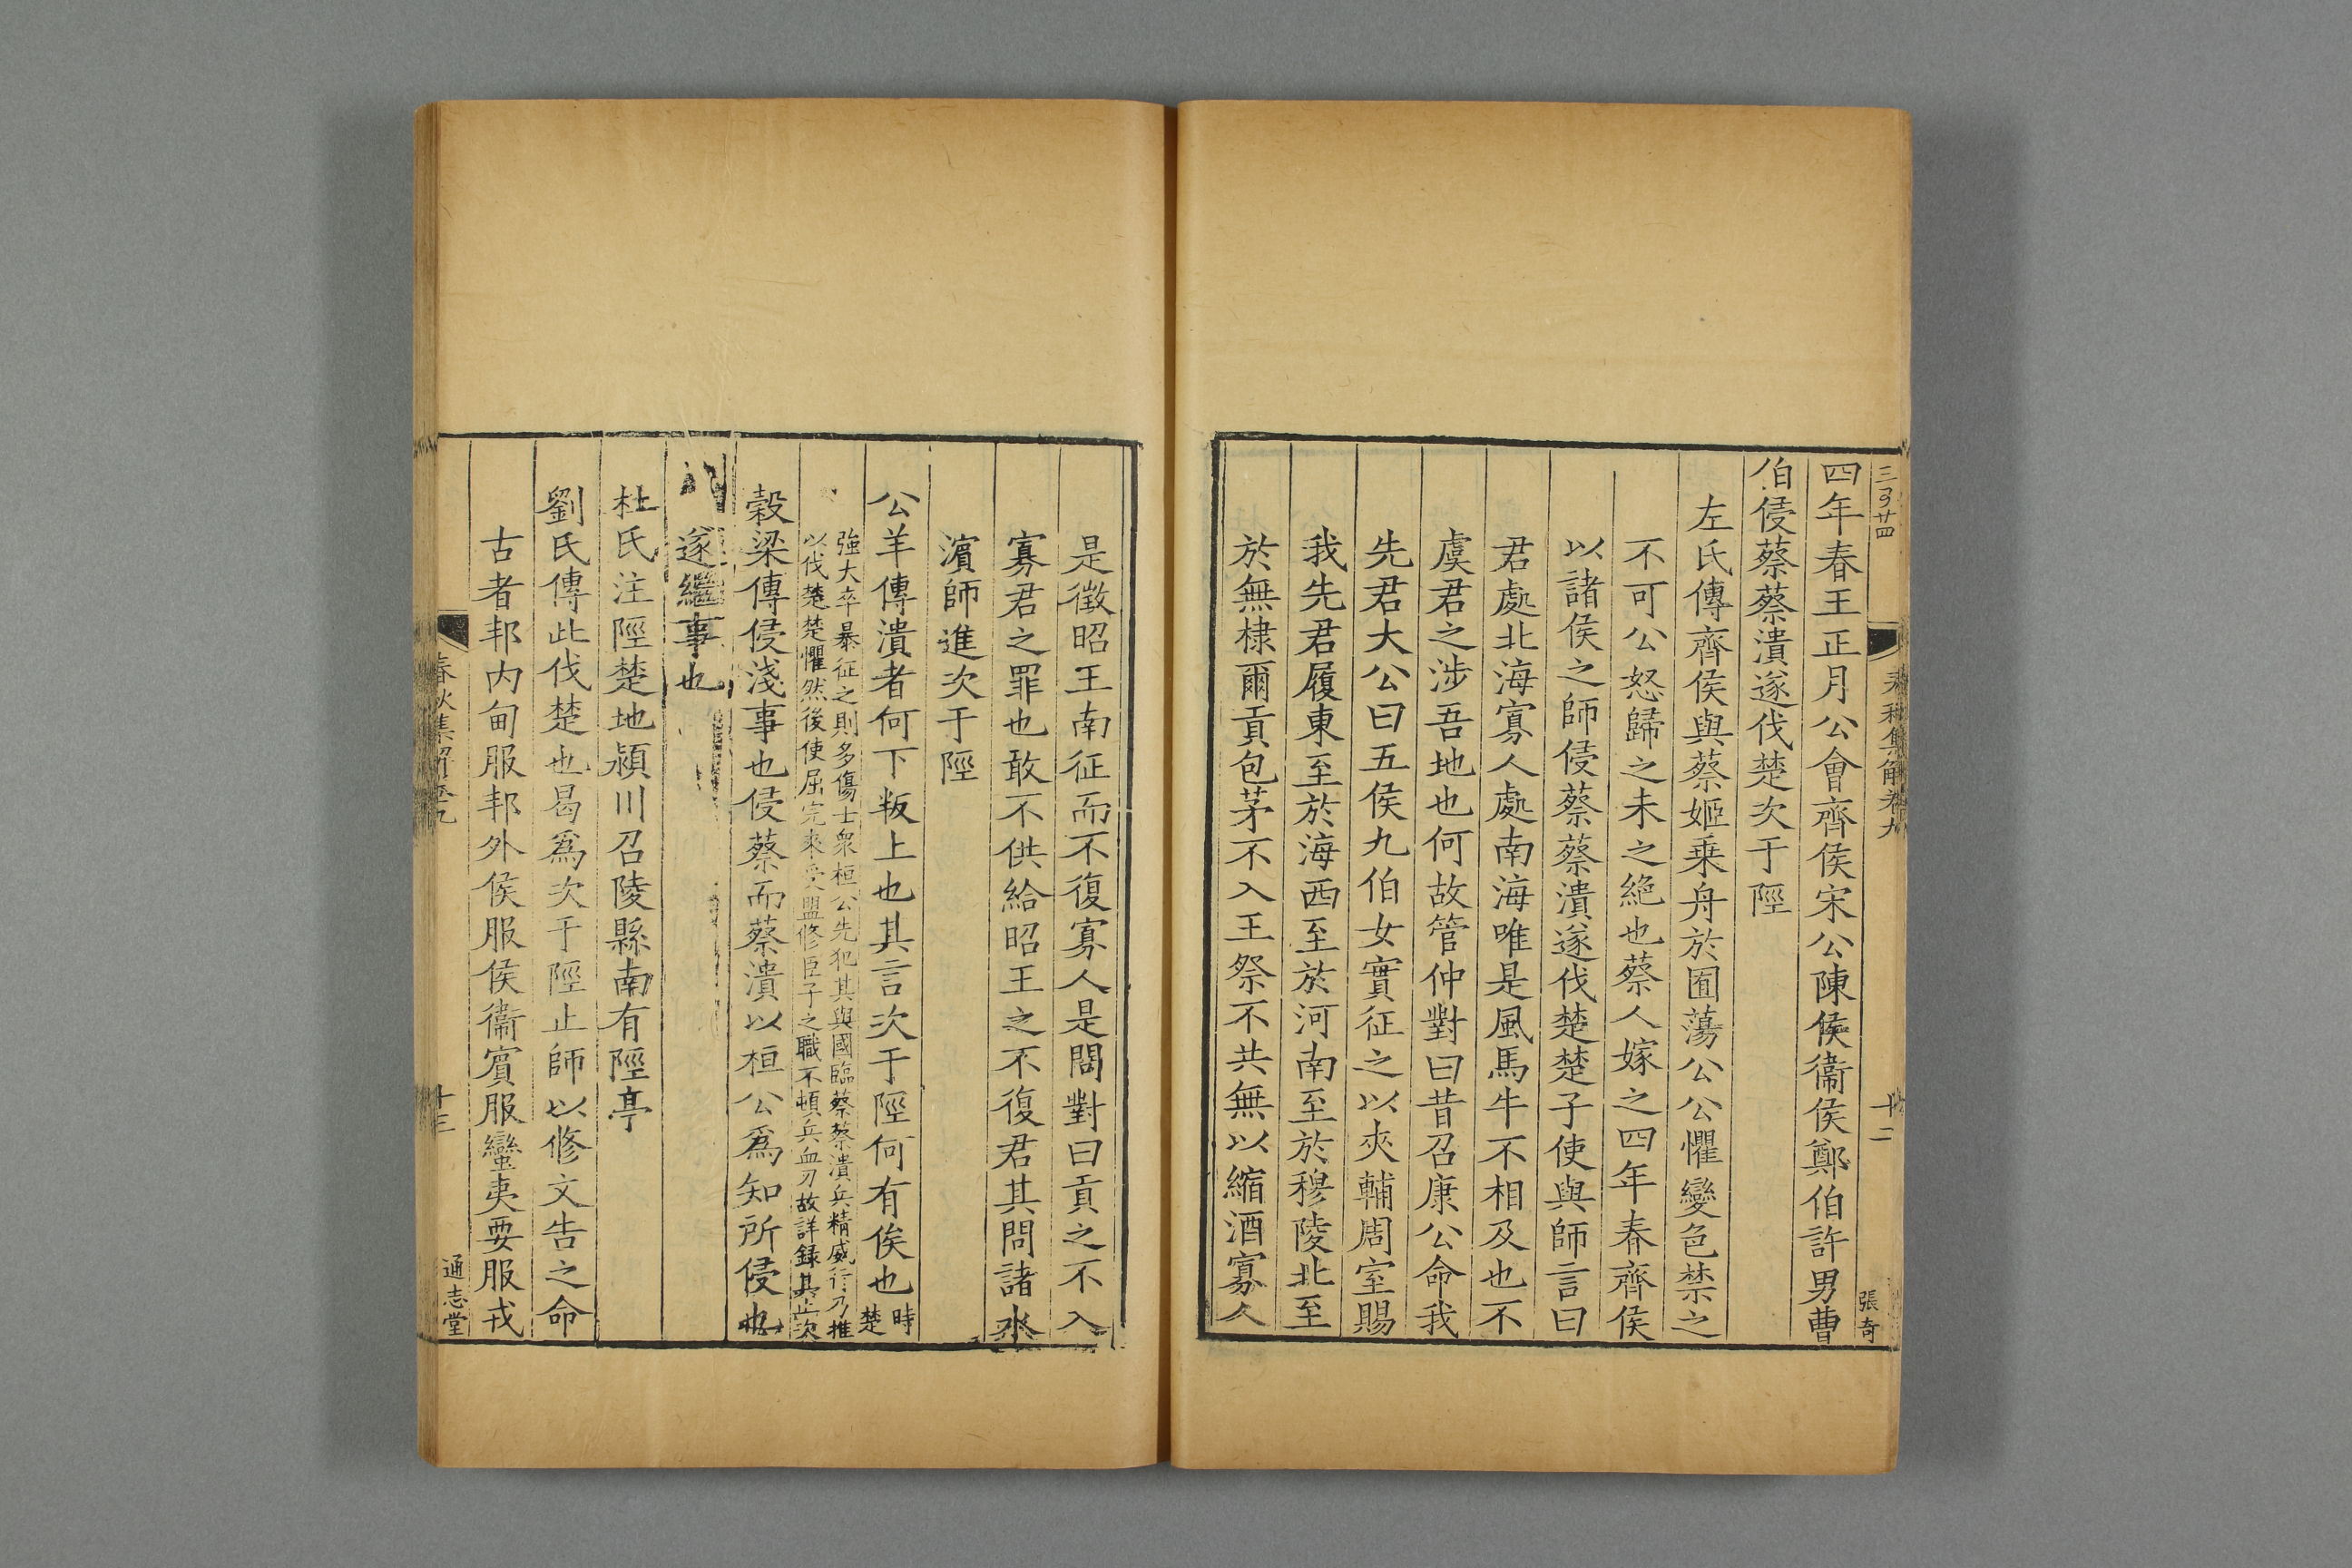 三百廿四
張奇
十二
四年春王正月公會齊侯宋公陳侯衞侯鄭伯許男曹
伯侵蔡蔡潰遂伐楚次于陘
左氏傳齊侯與蔡姬乗舟於囿蕩公公懼變色禁之
不可公怒歸之未之絶也蔡人嫁之四年春齊侯
以諸侯之師侵蔡蔡潰遂伐楚楚子使與師言曰
君處北海寡人處南海唯是風馬牛不相及也不
虞君之涉吾地也何故管仲對曰昔召康公命我
先君大公曰五侯九伯女實征之以夾輔周室賜
我先君履東至於海西至於河南至於穆陵北至
於無棣爾貢包茅不入王祭不共無以縮酒寡人
是徵昭王南征而不復寡人是問對曰貢之不入
寡君之罪也敢不供給昭王之不復君其問諸水
濵師進次于陘
公羊傳潰者何下叛上也其言次于陘何有俟也時楚
強大卒暴征之則多傷士衆桓公先犯其與國臨蔡蔡潰兵精威行乃推
以伐楚楚懼然後使屈完來受盟修臣子之職不頓兵血刃故詳録其止次
榖梁傳侵淺事也侵蔡而蔡潰以桓公爲知所侵也
遂繼事也
杜氏注陘楚地潁川召陵縣南有陘亭
劉氏傳此伐楚也曷爲次于陘止師以修文告之命
古者邦内甸服邦外侯服侯衞賓服蠻夷要服戎
春秋集解卷九
十三
通志堂